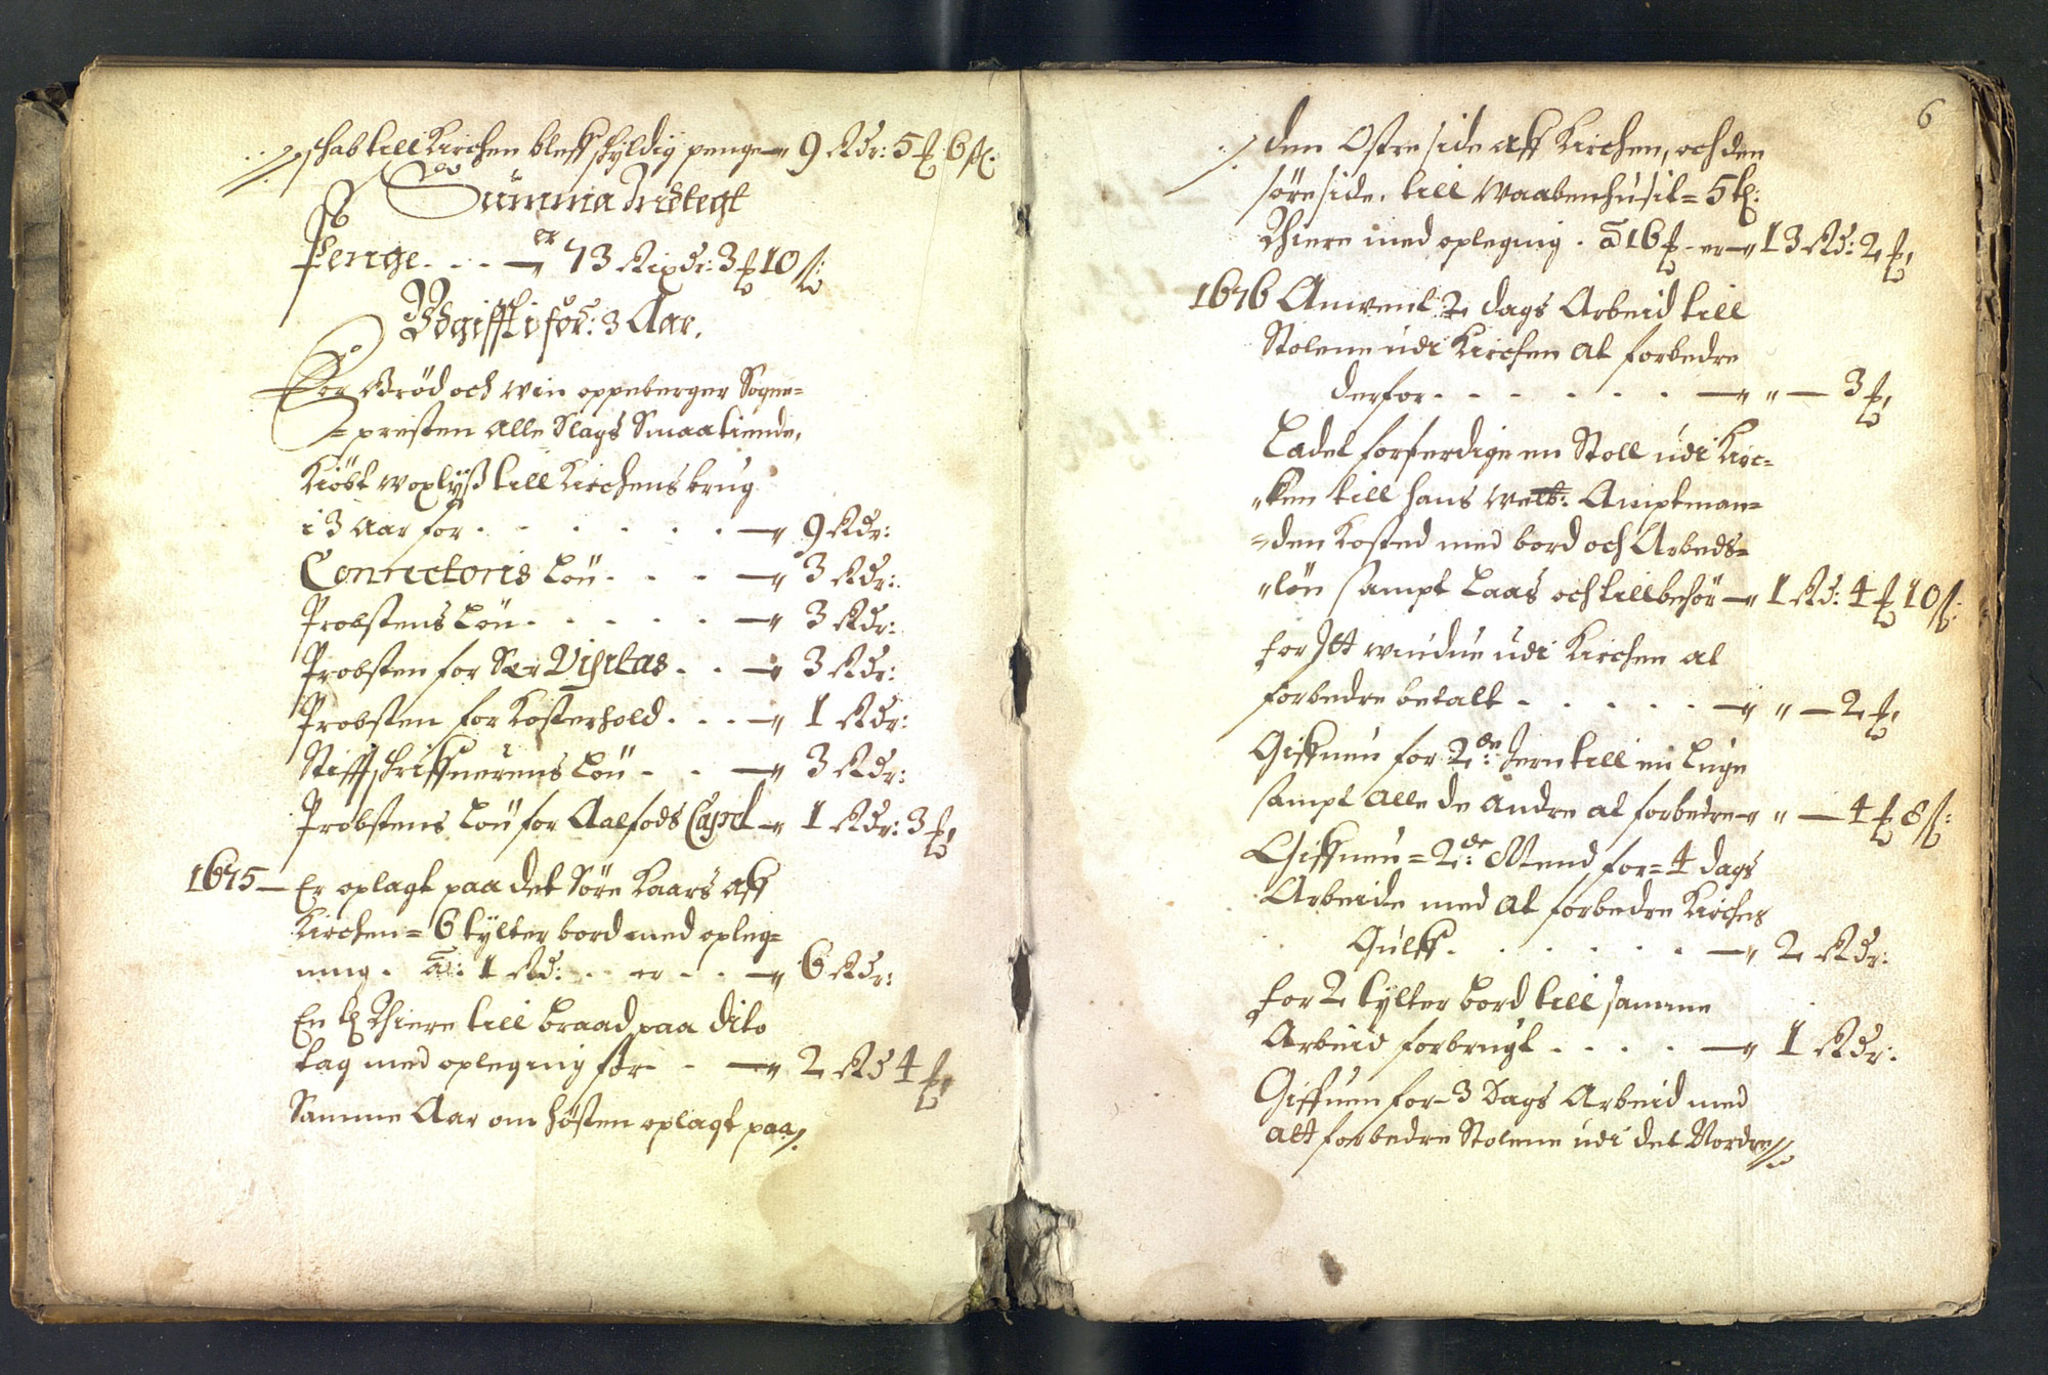 schab till Kirchen bleff skyldig penge 9 Rdr: 5 ƶ 6 ß:
Summa Indtegt
Penge . . . er 73 Rixdr: 3 ƶ 10 ß:
Udgifft i for: 3 Aar.
For Brød och win oppeberger Sogne=
=presten alle Slags Smaatiende,
Kiøbt woxlyß till Kirchens brug
i 3 Aar for . . . . . . 9 Rdr:
Conrectoris Løn . . . 3 Rdr:
Probstens Løn . . . . . 3 Rdr:
Probsten for Sær Visitas . . 3 Rdr:
Probsten for Kosterhold . . . 1 Rdr:
Stifftschriffuerens Løn . . 3 Rdr:
Probstens Løn for Aalfods Capel 1 Rdr: 3 ƶ
1675 Er oplagt paa det Søre Kaars aff
Kirchen = 6 tylter bord med opleg=
ning . a: 1 Rd: . . er . . 6 Rdr:
En tƶ Thiere till braad paa dito
tag med oplegnig for . . 2 Rd 4 ƶ
Samme Aar om høsten oplagt paa
6
den Ostre side aff Kirchen, och den
søre side . till Waabenhusit = 5 tƶ:
Thiere med oplegnig . a 16 ƶ . er 13 Rd: 2 ƶ
1676 Anvent 2 dags Arbeid till
Stolene udi Kirchen at forbedre
derfor . . . . . . " 3 ƶ
Ladet forferdige en Stoll udi Kirc=
"ken till hans Welb: Amptman=
=den Kosted med bord och Arbeds=
"løn sampt Laas och tillbehør 1 Rd: 4 ƶ 10 ß:
for Itt windue udi Kirchen at
forbedre betalt . . . . . " 2 ƶ
Giffuen for 2de: Jern till en Luge
sampt alle de andre at forbedre " 4 ƶ 8 ß:
Giffuen = 2de: Mend for = 4 dags
Arbeide med at forbedre Kirchens
Gulff . . . . . . 2 Rdr:
for 2 tylter bord till samme
Arbeid forbrugt . . . . 1 Rdr:
Giffuen for 3 Dags Arbeid med
att forbedre Stolene udi det Nordre